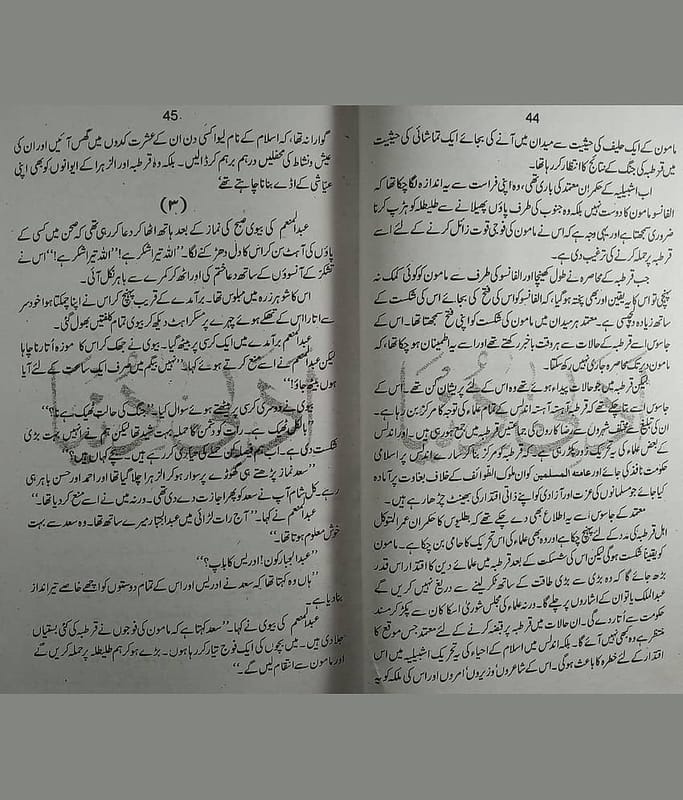 44
مامون کے ایک حلیف کی حیثیت سے میدان میں آنے کی بجائے ایک تماشائی کی حیثیت
میں قرطبہ کی جنگ کے نتائج کا انتظار کر رہا تھا۔
اب اشبیلیہ کے حکمران معتمد کی باری تھی، وہ اپنی فراست سے یہ اندازہ لگا چکا تھا کہ
الفانسو مامون کا دوست نہیں بلکہ وہ جنوب کی طرف پاؤں پھیلانے سے طلیطلہ کو ہڑپ کرنا
ضروری سمجھتا ہے اور یہی وجہ ہے کہ اس نے مامون کی فوجی قوت زائل کرنے کے لئے اسے
قرطبہ پر حملہ کرنے کی ترغیب دی ہے۔
جب قرطبہ کے محاصرہ نے طول کھینچا اور الفانسو کی طرف سے مامون کو کوئی کمک نہ
پہنچی تو اس کا یہ یقین اور بھی پختہ ہو گیا، کہ الفانسو کو اس کی فتح کی بجائے اس کی شکست کے
ساتھ زیادہ دلچسپی ہے۔ معتمد ہر میدان میں مامون کی شکست کو اپنی فتح سمجھتا تھا۔ اس کے
جاسوس اسے قرطبہ کے حالات سے ہر وقت باخبر رکھتے تھے اور اسے یہ اطمینان ہو چکا تھا، کہ
مامون دیر تک محاصرہ جاری نہیں رکھ سکتا۔
لیکن قرطبہ میں جو حالات پیدا ہوئے تھے وہ اس کے لئے پریشان کن تھے۔ اُس کے
جاسوس اسے بتا چکے تھے کہ قرطبہ آہستہ آہستہ اندلس کے تمام علماء کی توجہ کا مرکز بن رہا ہے۔
ان کی تبلیغ سے مختلف شہروں سے رضا کاروں کی جماعتیں قرطبہ میں جمع ہو رہی ہیں۔ اور اندلس
کے بعض علماء کی یہ تحریک زور پکڑ رہی ہے۔ کہ قرطبہ کو مرکز بنا کر سارے اندلس پر اسلامی
حکومت نافذ کی جائے اور عامۃ المسلمین کو ان ملوک الطوائف کے خلاف بغاوت پر آمادہ
کیا جائے جو مسلمانوں کی عزت اور آزادی کو اپنے ذاتی اقتدار کی بھینٹ چڑھا رہے ہیں۔
معتمد کے جاسوس اسے یہ اطلاع بھی دے چکے تھے کہ بطلیوس کا حکمران عمر المتوکل
اہل قرطبہ کی مدد کے لئے پہنچ چکا ہے اور وہ بھی علماء کی اس تحریک کا حامی بن چکا ہے۔ مامون
کو یقیناً شکست ہو گی لیکن اس کی شکست کے بعد قرطبہ میں علمائے دین کا اقتدار اس قدر
بڑھ جائے گا کہ وہ بڑی سے بڑی طاقت کے ساتھ ٹکر لینے سے دریغ نہیں کریں گے
عبدالملک یا تو ان کے اشاروں پر چلے گا۔ ورنہ علماء کی مجلس شوریٰ اس کا کان سے پکڑ کر مسند
حکومت سے اُتار دے گی۔ ان حالات میں قرطبہ پر قبضہ کرنے کے لئے معتمد جس موقع کا
منتظر ہے وہ کبھی نہیں آئے گا۔ بلکہ اندلس میں اسلام کے احیاء کی یہ تحریک اشبیلیہ میں اس
اقتدار کے لئے خطرہ کا باعث ہو گی۔ اس کے شاعروں، وزیروں، امروں اور اس کی ملکہ کو یہ
45
گوارا نہ تھا، کہ اسلام کے نام لیوا کسی دن ان کے عشرت کدوں میں گھس آئیں اور ان کی
عیش و نشاط کی محفلیں درہم برہم کر ڈالیں۔ بلکہ وہ قرطبہ اور الزہرا کے ایوانوں کو بھی اپنی
عیاشی کے اڈے بنانا چاہتے تھے
(۳)
عبدالمنعم کی بیوی صبح کی نماز کے بعد ہاتھ اٹھا کر دعا کر رہی تھی کہ صحن میں کسی کے
پاؤں کی آہٹ سن کر اس کا دل دھڑکنے لگا۔ "اللہ تیرا شکر ہے! "اللہ تیرا شکر ہے! اس نے
تشکر کے آنسوؤں کے ساتھ دعا ختم کی اور اٹھ کر کمرے سے باہر نکل آئی۔
اس کا شوہر زرہ میں ملبوس تھا۔ برآمدے کے قریب پہنچ کر اس نے اپنا چمکتا ہوا خود سر
سے اتارا اس کے تھکے ہوئے چہرے پر مسکراہٹ دیکھ کر بیوی تمام کلفتیں بھول گئی۔
عبدالمنعم برآمدے میں ایک کرسی پر بیٹھ گیا۔ بیوی نے جھک کر اس کا موزہ اُتارنا چاہا
لیکن عبدالمنعم نے اسے منع کرتے ہوئے کہا۔ "نہیں بیگم میں صرف ایک ساعت کے لئے آیا
ہوں بیٹھ جاؤ!"
بیوی نے دوسری کرسی پر بیٹھتے ہوئے سوال کیا۔ "جنگ کی حالت ٹھیک ہے نا؟"
"بالکل ٹھیک ہے۔ رات کو دشمن کا حملہ بہت شدید تھا لیکن ہم نے انہیں بہت بڑی
شکست دی ہے۔ اب ہم فیصلہ کن حملے کی تیاری کر رہے ہیں۔ بچے کہاں ہیں؟"
"سعد نماز پڑھتے ہی گھوڑے پر سوار ہو کر الزہرا چلا گیا تھا اور احمد اور حسن باہر ہی
رہے۔ کل شام آپ نے سعد کو پھر اجازت دے دی تھی۔ ورنہ میں نے اسے منع کر دیا تھا۔"
عبدالمنعم نے کہا۔ "آج رات لڑائی میں عبدالجبار میرے ساتھ تھا۔ وہ سعد سے بہت
خوش معلوم ہوتا تھا۔"
"عبدالجبار کون! ادریس کا باپ؟"
"ہاں وہ کہتا تھا کہ سعد نے ادریس اور اس کے تمام دوستوں کو اچھے خاصے تیر انداز
بنا دیا ہے۔
عبدالمنعم کی بیوی نے کہا۔ "سعد کہتا ہے کہ مامون کی فوجوں نے قرطبہ کی کئی بستیاں
جلا دی ہیں۔ میں بچوں کی ایک فوج تیار کر رہا ہوں۔ بڑے ہو کر ہم طلیطلہ پر حملہ کریں گے
اور مامون سے انتقام لیں گے۔"